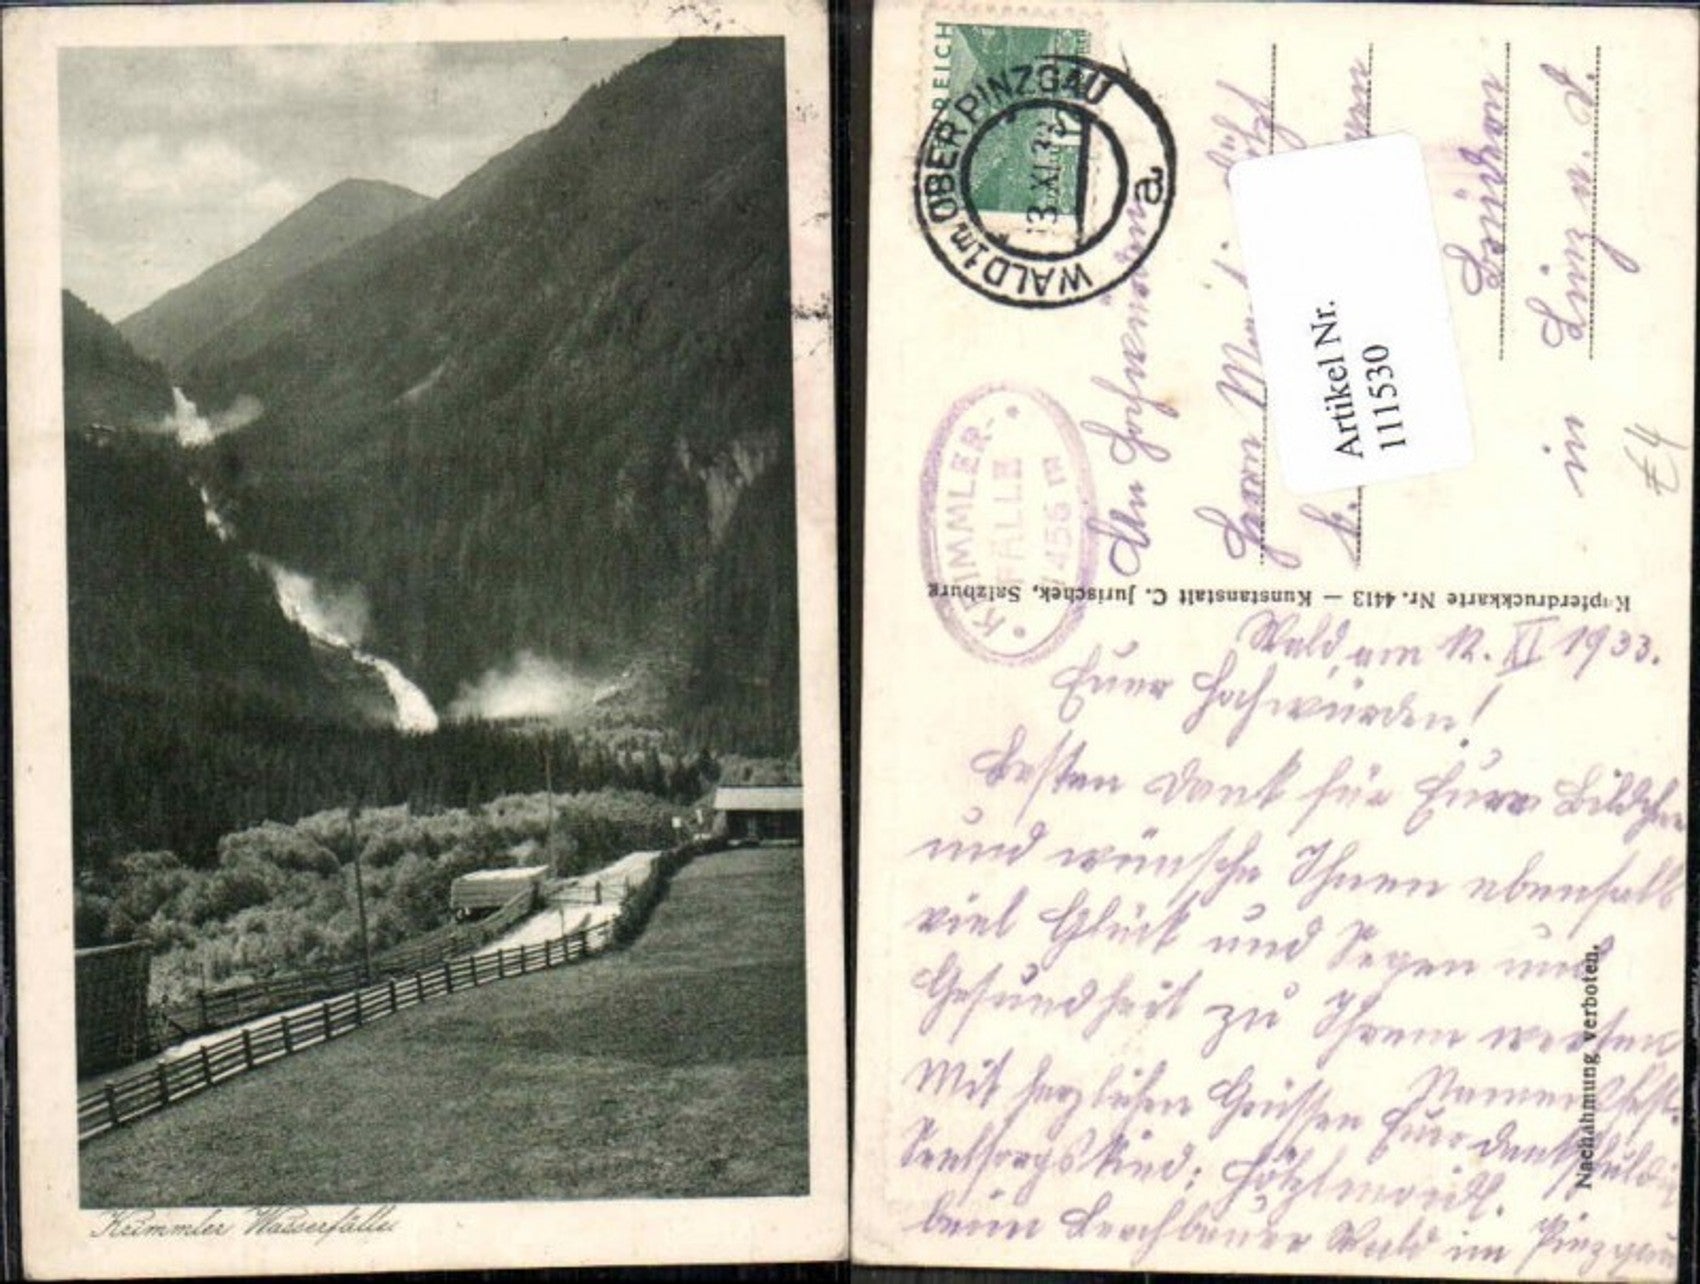 Krimmler Wasserfälle
REICH
WALD im OBERPINZGAU
a
KRIMMLER-
FÄLLE
1456 m
An Hochwürden
Herrn
Artikel Nr.
111530
in Linz a. D.
€4
Kupferdruckkarte Nr. 4413 — Kunstanstalt C. Jurischek, Salzburg
Nachahmung verboten.
Wald, am 12. XI 1933.
Euer Hochwürden!
Besten Dank für Eure Bildchen
und wünsche Ihnen ebenfalls
viel Glück und Segen und
Gesundheit zu Ihrem werten
Namensfest.
Mit herzlichen Grüssen Euer dankschuldig
Seelsorgskind:
beim Lerchbauer Wald im Pinzgau